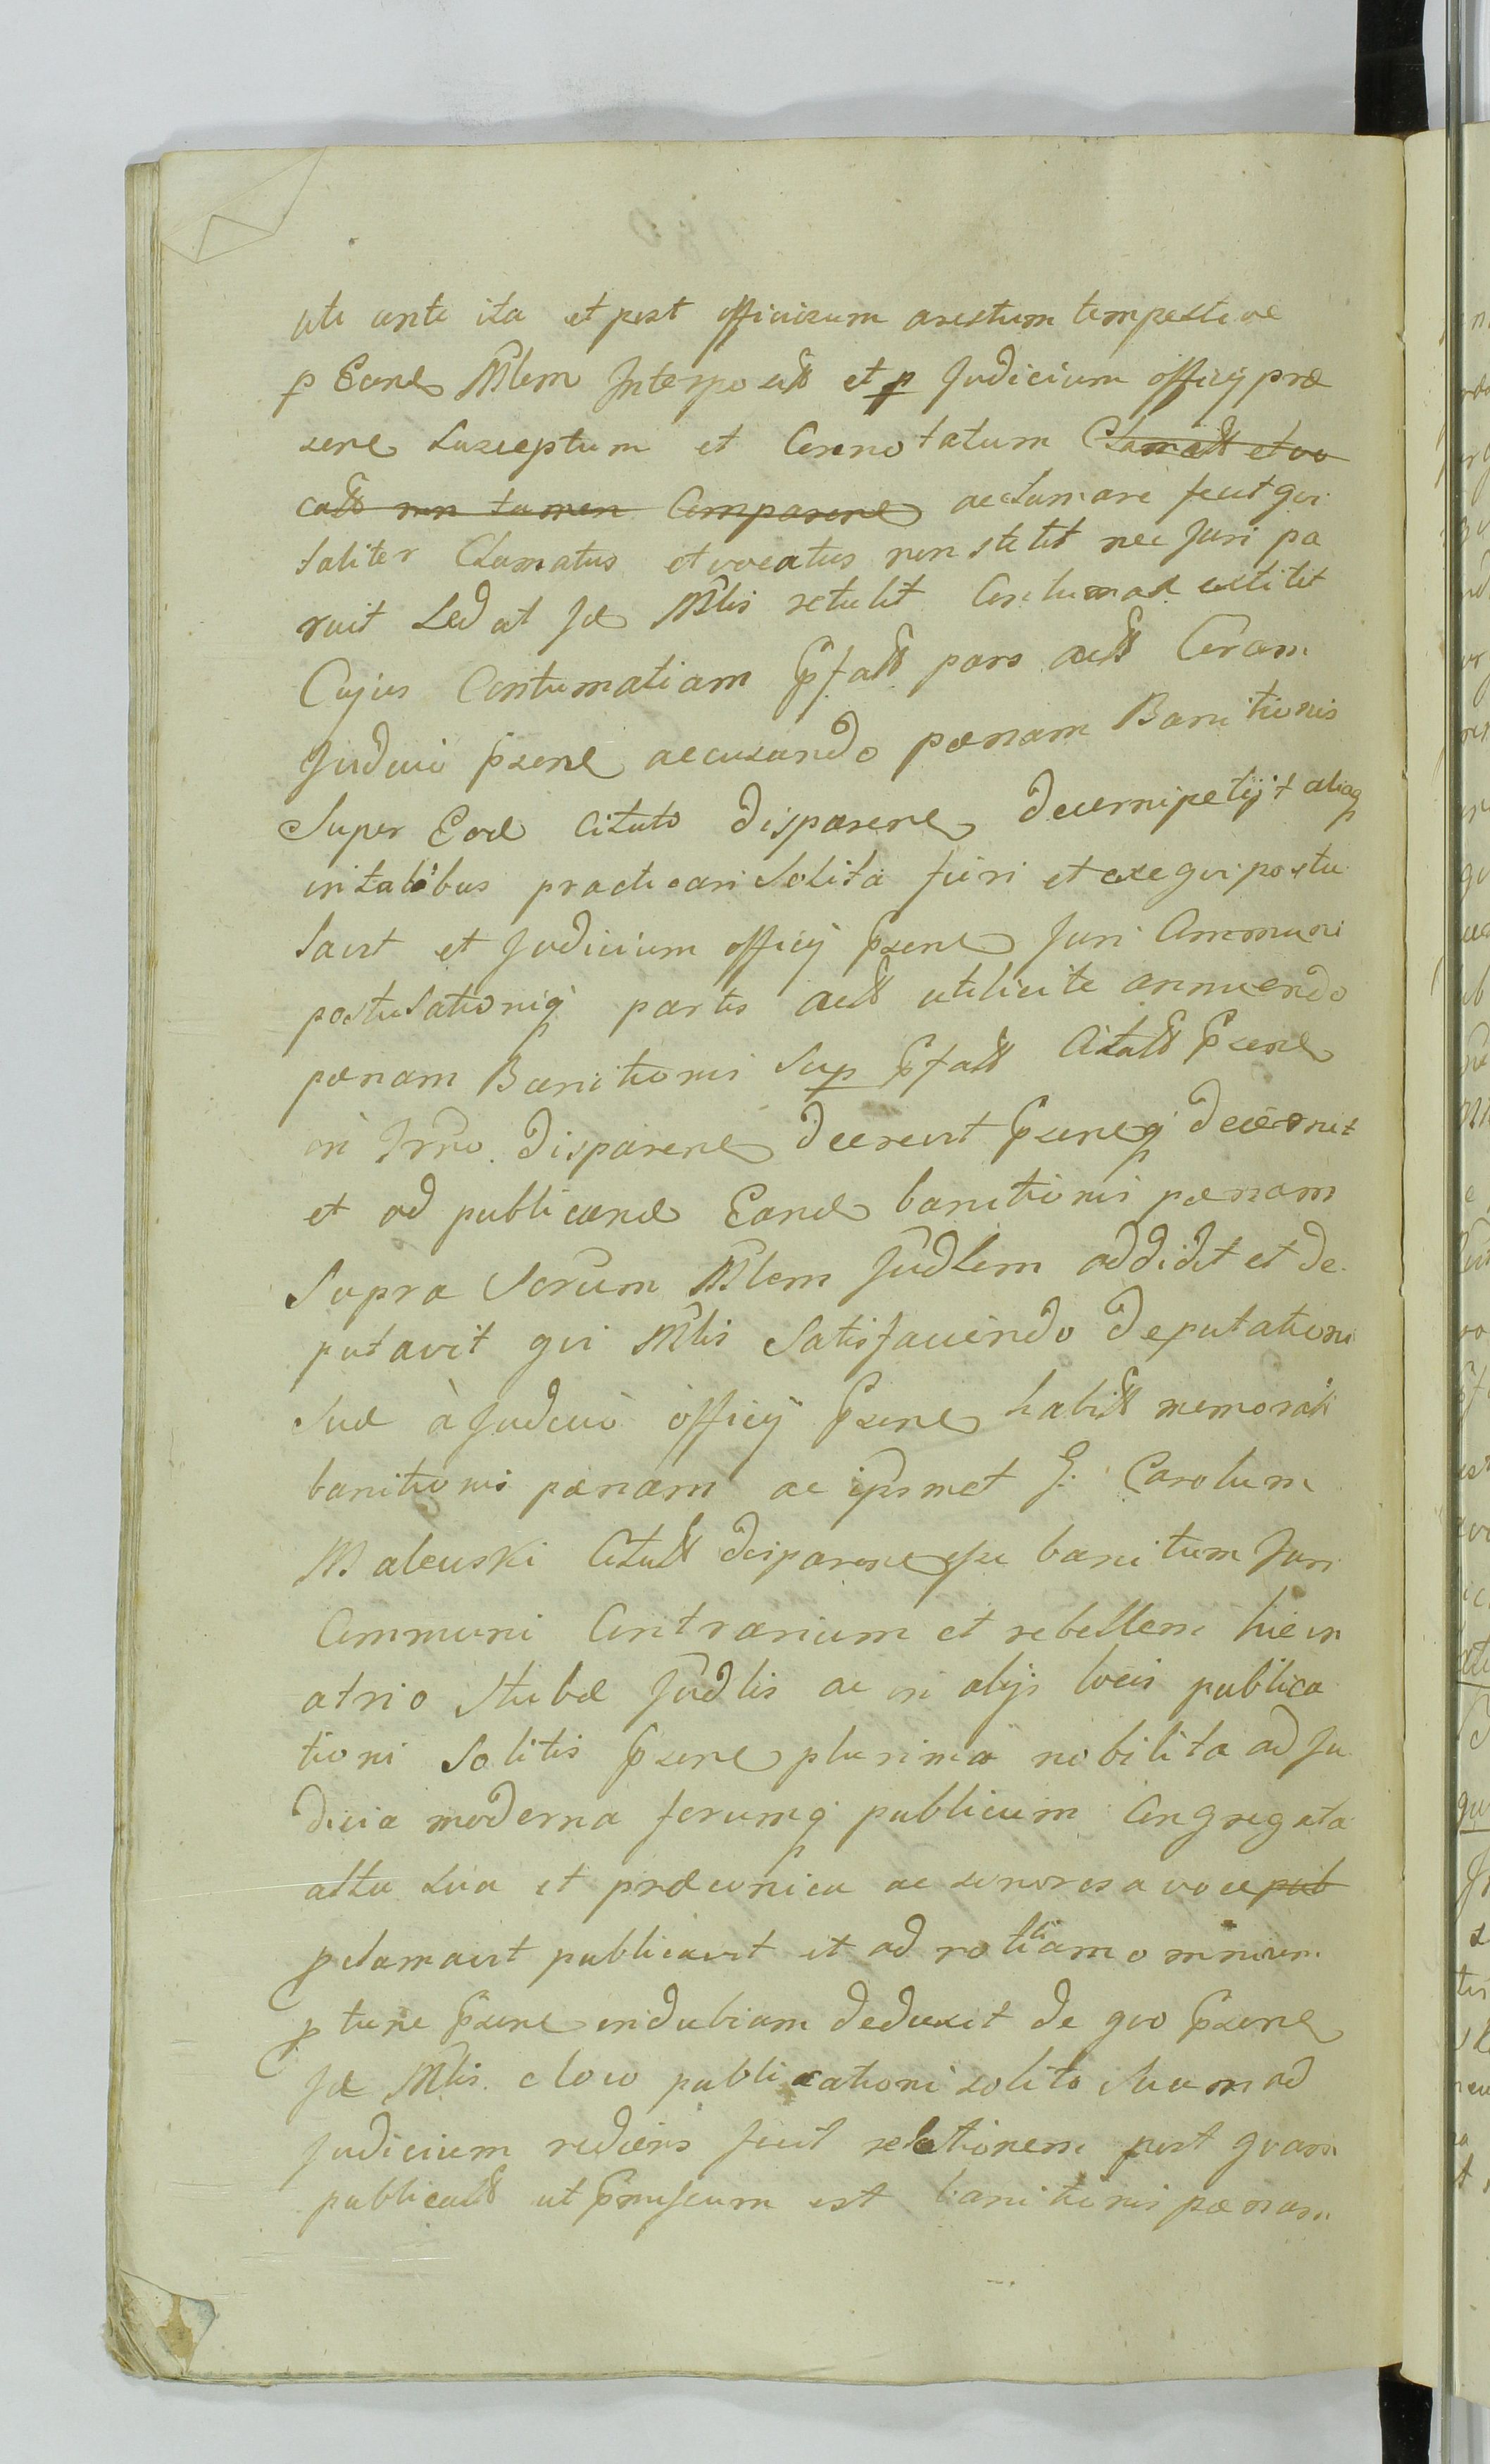 uti ante ita et post officiorum arestum tempestive
p Eand Mlem Interposit et p Judicium officy præ
sens susceptum et Connotatum Clamatt et vo
catt non tamen Comparens acclamare fecit qui
taliter Clamatus et vocatus non stetit nec Juri pa
ruit sed ut Id Mlis retulit Contumax extitit
Cujus Contumatiam Pfatt pars actt Coram
Judicio psens accusando pœnam Banitionis
Super Eod Citato disparens decerni petijt aliaq
in talibus practicari Solita fieri et exequi postu
lavit et Judicium officy Psens Juri Communi
postulationiq partis actt utilicite annuendo
pœnam Banitionis Sup Pfatt Citatt Psens
in Trno disparens decrevit Psensq decernit
et ad publicand Eand banitionis pœnam
Supra Scrum Mlem Judlem addidit et de
putavit qui Mlis Satisfaciendo deputationi
suæ à Judicio officy Psens habitt memorati
banitionis pœnam ac ipsmet G. Carolum
Maleuski Citatt disparens esse banitum Juri
Communi Contrarium et rebellem hic in
atrio Stubæ Judlis ac in alijs locis publica
tioni Solitis Psens plurima nobilita ad Ju
dicia moderna forumq publicum Congregata
alta sua et præconica ac sonorosa voce pub
pclamavit publicavit et ad notitiam omnium
p tunc Psens indubiam deduxit de quo Psens
Id Mlis e loco publicationi solito suam ad
Judicium rediens fecit relationem post quam
publicatt ut Pmissum est banitionis pœnam